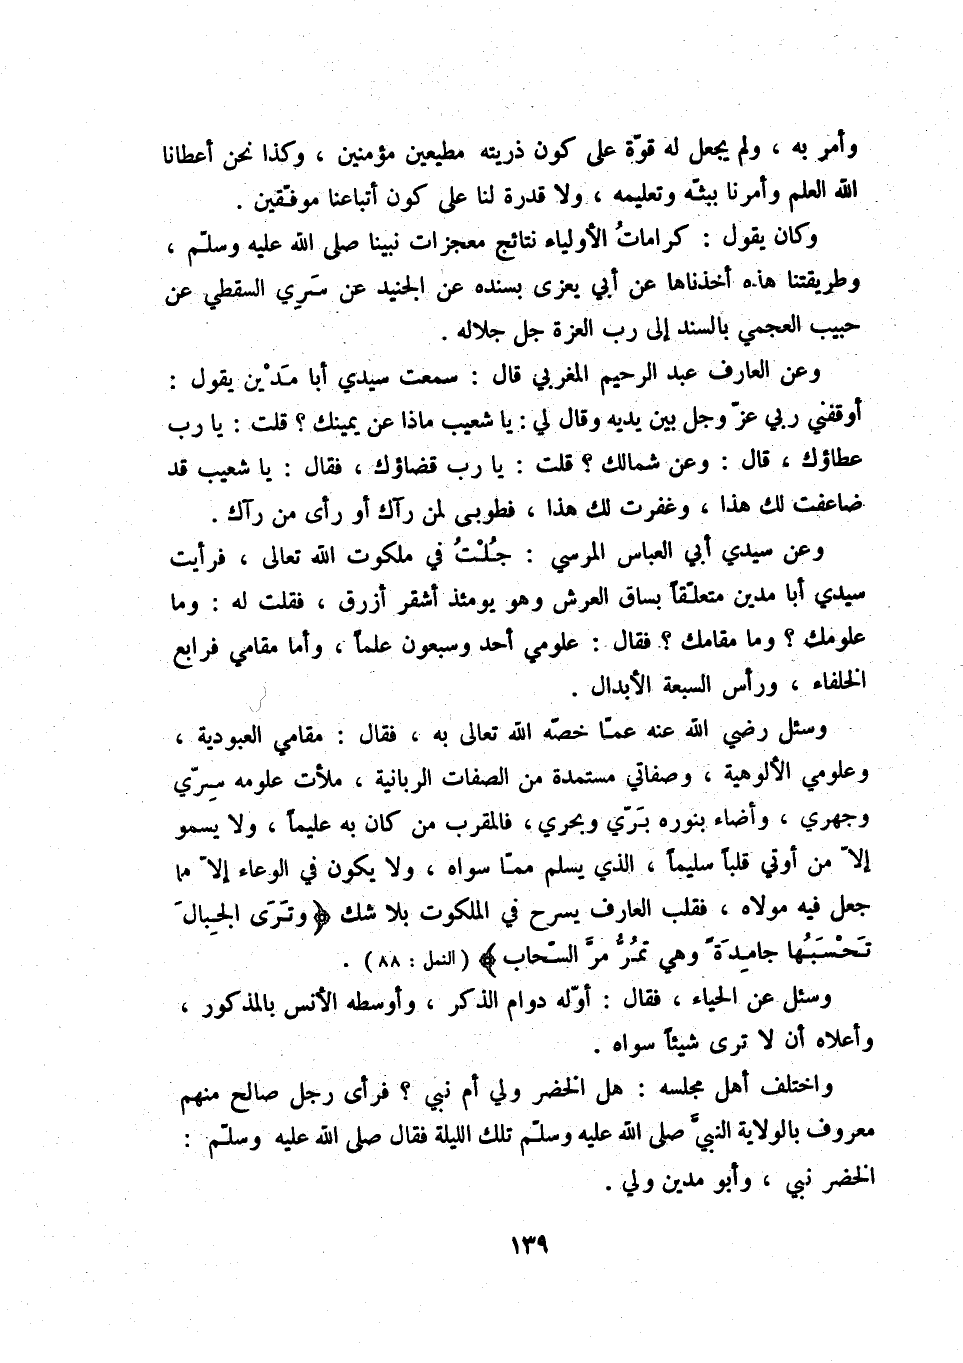 وأمر به ، ولم يجعل له قوّة على كون ذريته مطيعين مؤمنين ، وكذا نحن أعطانا
الله العلم وأمرنا ببثّه وتعليمه ، ولا قدرة لنا على كون أتباعنا موفّقين .
وكان يقول : كراماتُ الأولياء نتائج معجزات نبينا صلى الله عليه وسلّم ،
وطريقتنا هذه أخذناها عن أبي يعزى بسنده عن الجنيد عن سَرِي السقطي عن
حبيب العجمي بالسند إلى رب العزة جل جلاله .
وعن العارف عبد الرحيم المغربي قال : سمعت سيدي أبا مَدْين يقول :
أوقفني ربي عزّ وجل بين يديه وقال لي : يا شعيب ماذا عن يمينك ؟ قلت : يا رب
عطاؤك ، قال : وعن شمالك ؟ قلت : يا رب قضاؤك ، فقال : يا شعيب قد
ضاعفت لك هذا ، وغفرت لك هذا ، فطوبى لمن رآك أو رأى من رآك .
وعن سيدي أبي العباس المرسي : جُلْتُ في ملكوت الله تعالى ، فرأيت
سيدي أبا مدين متعلّقاً بساق العرش وهو يومئذ أشقر أزرق ، فقلت له : وما
علومك ؟ وما مقامك ؟ فقال : علومي أحد وسبعون علماً ، وأما مقامي فرابع
الخلفاء ، ورأس السبعة الأبدال .
وسئل رضي الله عنه عمّا خصّه الله تعالى به ، فقال : مقامي العبودية ،
وعلومي الألوهية ، وصفاتي مستمدة من الصفات الربانية ، ملأت علومه سِرّي
وجهري ، وأضاء بنوره بَرّي وبحري ، فالمقرب من كان به عليماً ، ولا يسمو
إلاّ من أوتي قلباً سليماً ، الذي يسلم ممّا سواه ، ولا يكون في الوعاء إلاّ ما
جعل فيه مولاه ، فقلب العارف يسرح في الملكوت بلا شك ﴿ وتَرَى الجِبالَ
تَحْسَبُها جامِدَةً وهي تمُرُّ مرَّ السّحاب ﴾ ( النمل : ٨٨ ) .
وسئل عن الحياء ، فقال : أوّله دوام الذكر ، وأوسطه الأنس بالمذكور ،
وأعلاه أن لا ترى شيئاً سواه .
واختلف أهل مجلسه : هل الخضر ولي أم نبي ؟ فرأى رجل صالح منهم
معروف بالولاية النبيَّ صلى الله عليه وسلّم تلك الليلة فقال صلى الله عليه وسلّم :
الخضر نبي ، وأبو مدين ولي .
١٣٩